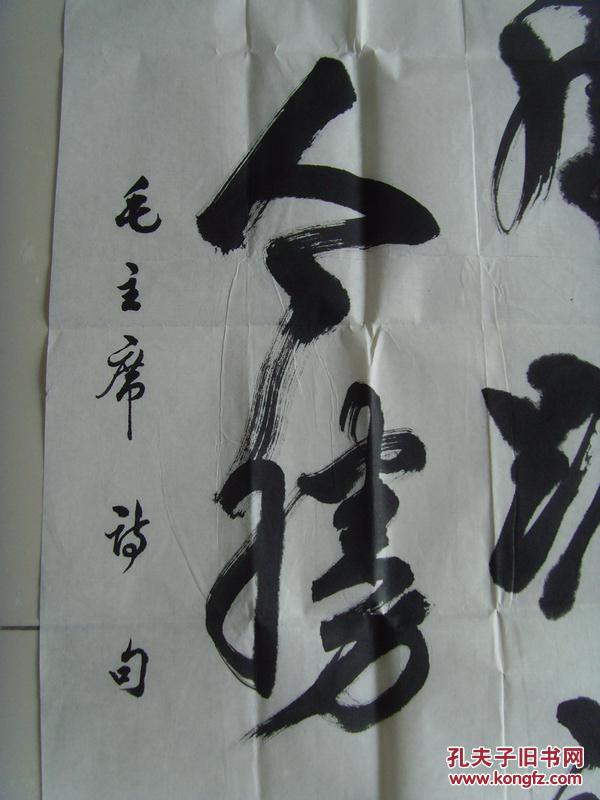 今勝
毛主席诗句
孔夫子旧书网
www.kongfz.com